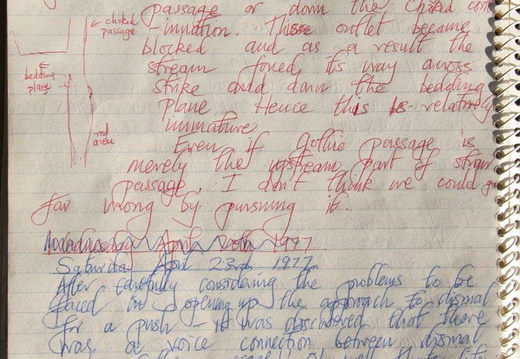 passage or down the choked cont
-inuation. This outlet became
blocked and as a result the
stream forced its way across
strike and down the bedding
plane. Hence this is relatively
immature
Even if Gothic passage is
merely the upstream part of stream
passage, I don't think we could go
far wrong by pursuing it.
choked
passage
bedding
plane
Wednesday April 20th 1977
Saturday April 23rd 1977
After carefully considering the problems to be
faced in opening up the approach to dismal
for a push - it was discovered that there
was a voice connection between dismal